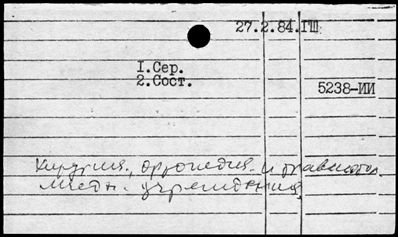 27.2.84.ГШ
1.Сер.
2.Сост.
5238-ИИ
Хирургия, ортопедия и травматол.
учреждения